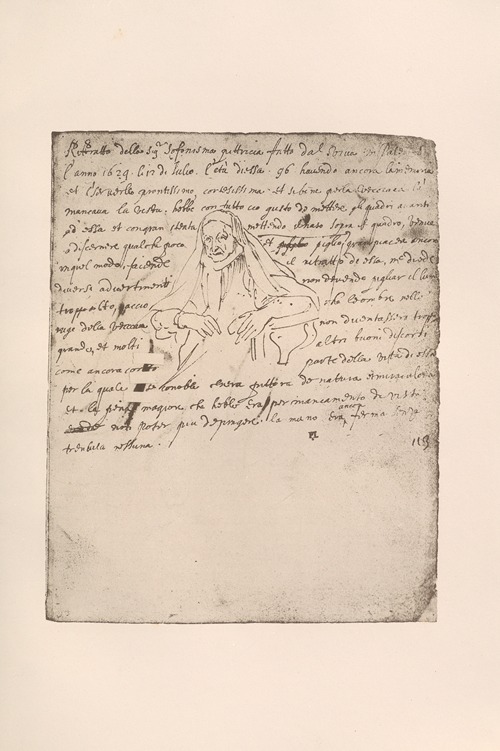 Rittratto della Sig.ra Sofonisma pittricia fatto dal vivo in Palermo
l'anno 1624 li 12 di Julio: l'età di essa 96 havendo ancora la memoria
et il serverllo prontissimo, cortesissima et sebene per la vecciaia la
mancava la vista. hebbe con tutto cio gusto de mettere gli quadri avanti
ad essa et con gran stenta mettendo il naso sopra il quadro, venne
a discernere qualch poco et piglio gran piacere ancora
in quel modo, facendo il ritratto de essa, me diede
diversi advertimenti non devendo pigliar il lume
troppo alto, accio che le ombre nelle
ruge della vecciaia non diventassero troppo
grande, et molti altri buoni discorsi
come ancora conto parte della vita di essa
per la quale si conobbe chera pittora de natura et miraculosa
et la pena magiore che hebbe era per mancamento de vista
non poter piu depingere. la mano era ancora ferma senza
tremula nessuna.